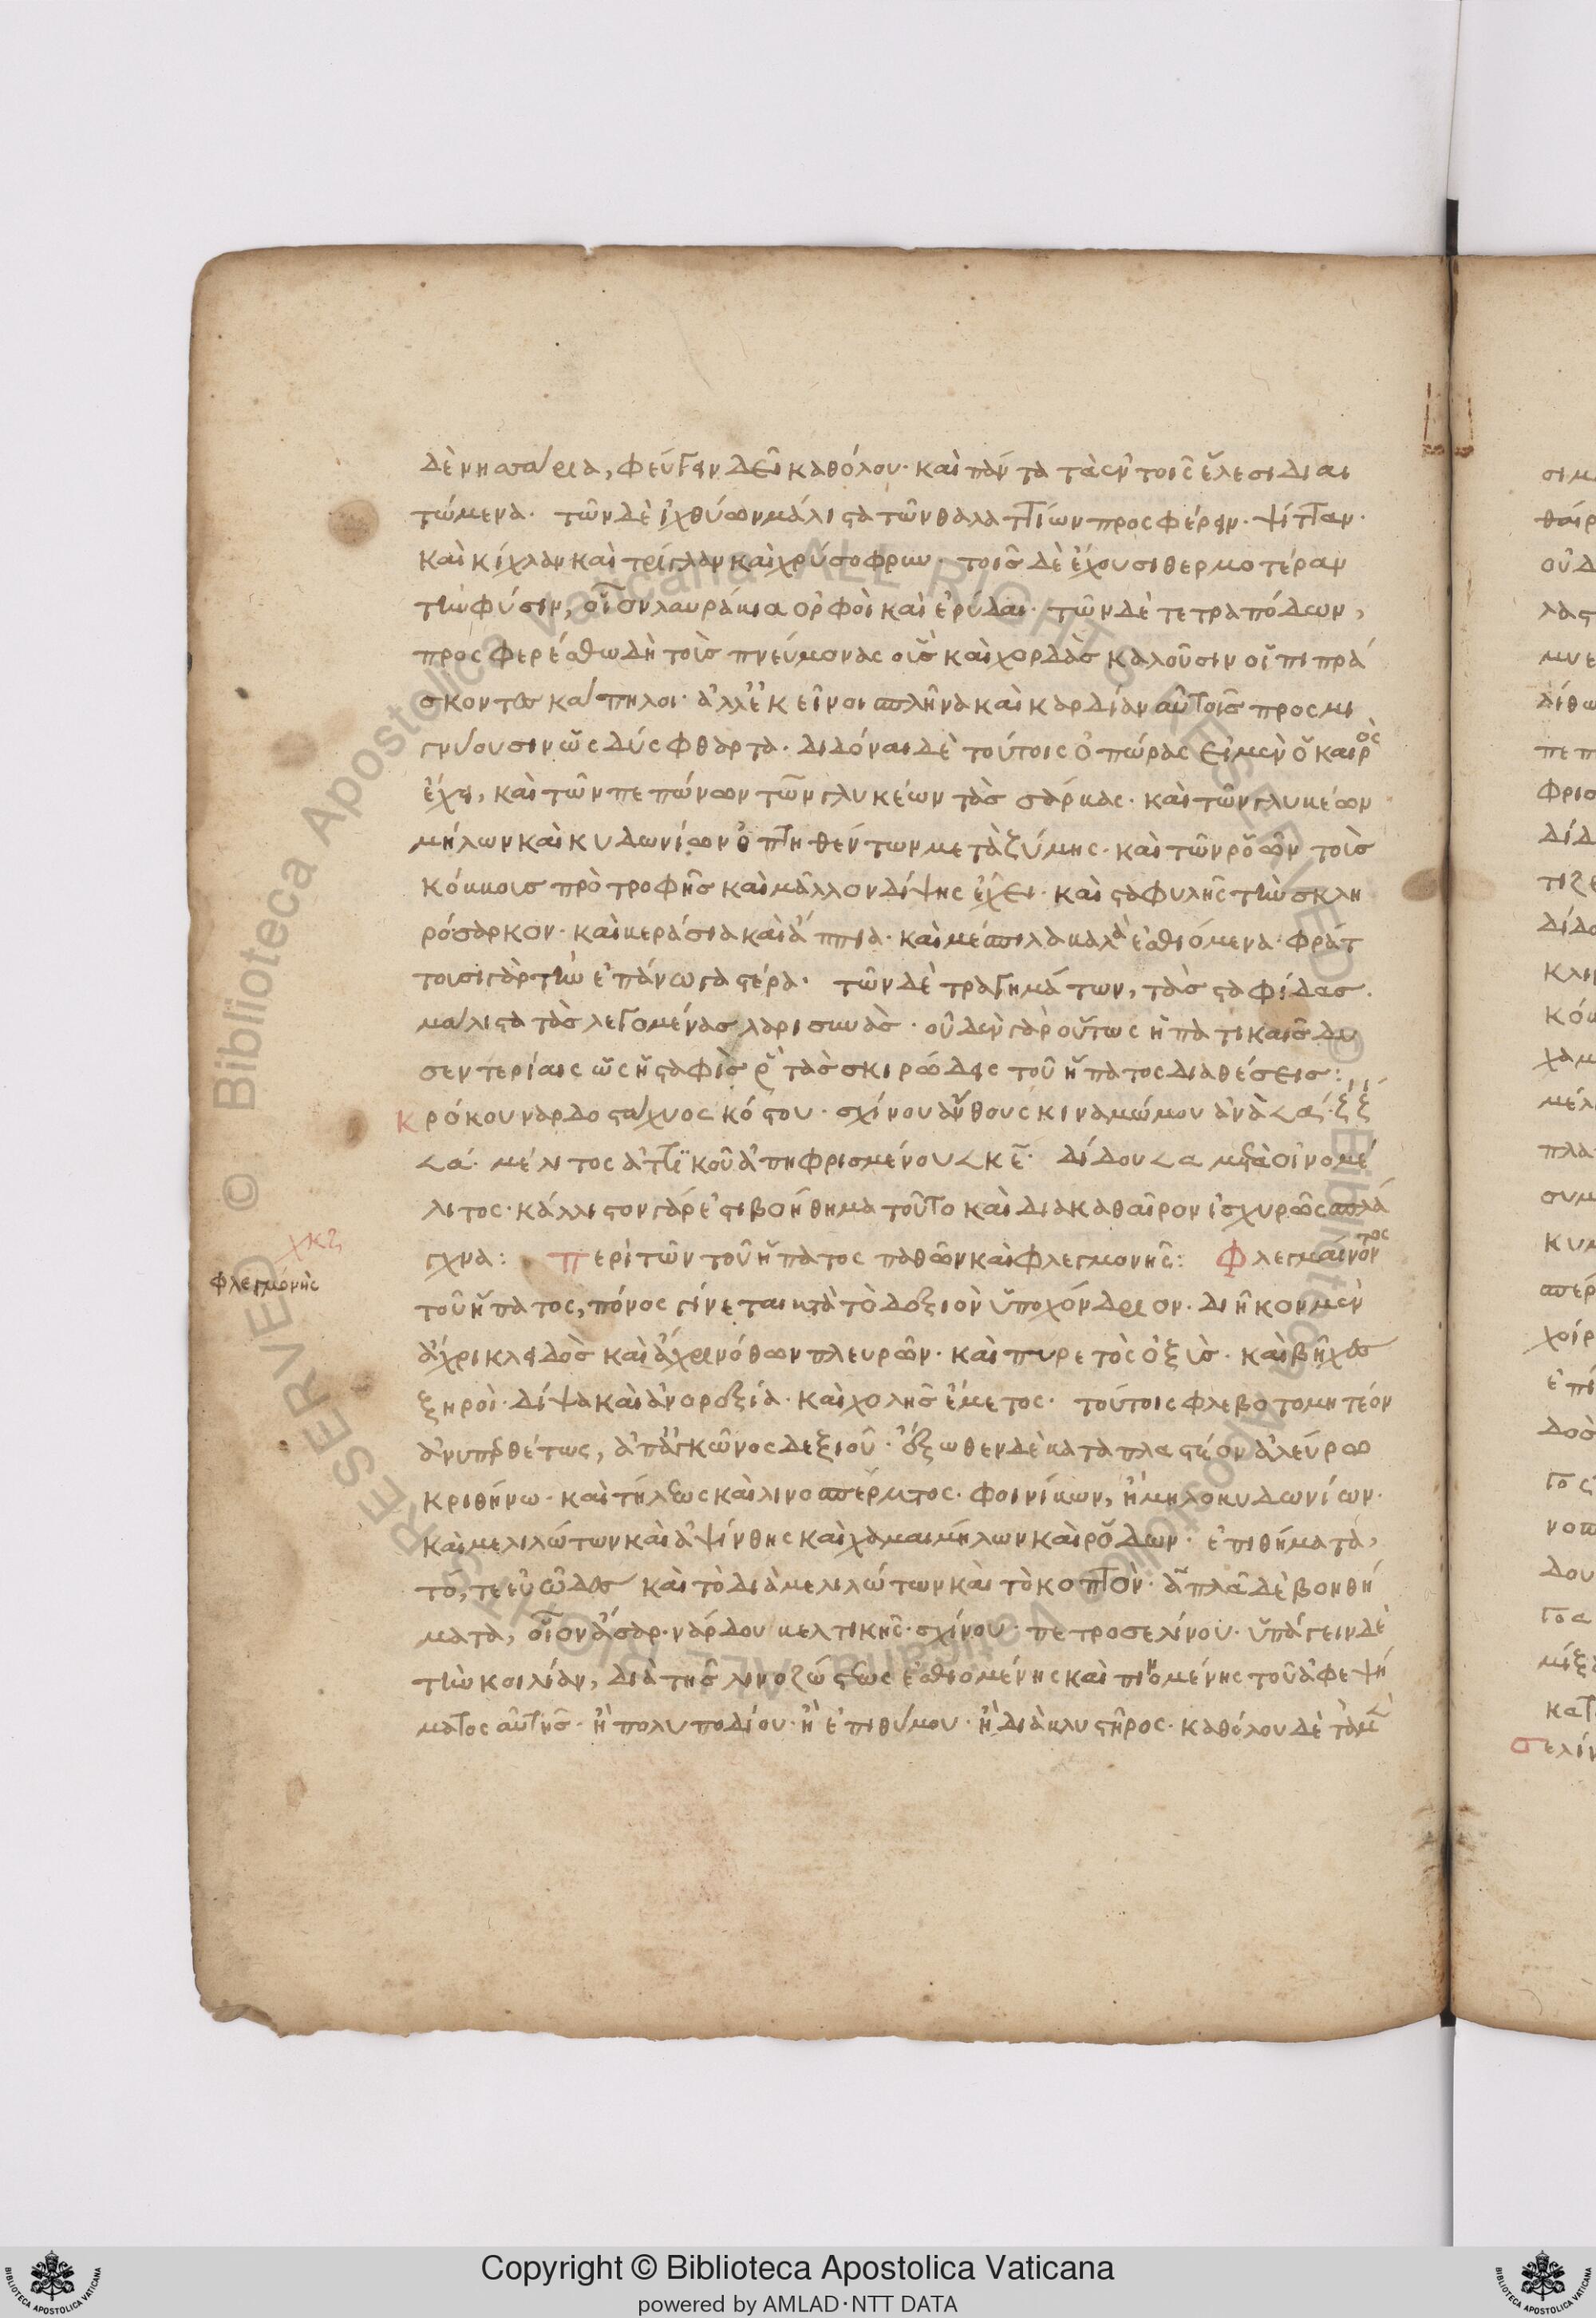 δὲ νησσάρια, φεύγειν δεῖ καθόλου· καὶ πάντα τὰ ἐν τοῖς ἕλεσι διαι
τώμενα· τῶν δὲ ἰχθύων μάλιστα τῶν θαλαττίων προσφέρειν· ψίτταν·
καὶ κίχλαν καὶ τρίγλαν καὶ χρύσοφρυν· τοῖς δὲ ἔχουσι θερμοτέραν
τὴν φύσιν, οἷον λαυράκια ὀρφοὶ καὶ ἐρύδαι· τῶν δὲ τετραπόδων,
προσφερέσθω δὴ τοῖς πνεύμονας οὓς καὶ χορδὰς καλοῦσιν οἱ πιπρά
σκοντες κάπηλοι· ἀλλ' ἐκεῖνοι σπλῆνα καὶ καρδίαν αὐτοῖς προσμι
γνύουσιν ὡς δύσφθαρτα· διδόναι δὲ τούτοις ὀπώρας εἰ μὲν ὁ καιρὸς
ἔχει, καὶ τῶν πεπόνων τῶν γλυκέων τὰς σάρκας· καὶ τῶν γλυκέων
μήλων καὶ κυδωνίων ὀπτηθέντων μετὰ ζύμης· καὶ τῶν ῥοῶν τοῖς
κόκκοις πρὸ τροφῆς καὶ μᾶλλον δίψης ἔχει· καὶ σταφυλῆς τὴν σκλη
ρόσαρκον· καὶ κεράσια καὶ ἄππια· καὶ μέσπιλα καλὰ ἐσθιόμενα· φράτ
τουσι γὰρ τὴν ἐπάνω γαστέρα· τῶν δὲ τραγημάτων, τὰς σταφίδας·
μάλιστα τὰς λεγομένας λαρισκυὰς· οὐδὲν γὰρ οὕτως ἡπατικαῖς δυ
σεντερίαις ὡς ἡ σταφὶς πρὸς τὰς σκιρώδεις τοῦ ἥπατος διαθέσεις:
Κρόκου ναρδοστάχυος κόστου· σχίνου ἄνθους κιναμώμου ἀνὰ
𐅻 α΄· μέλιτος ἀττικοῦ ἀπηφρισμένου 𐅻 κε· δίδου 𐅻 α μετὰ οἰνομέ
λιτος· κάλλιστον γάρ ἐστι βοήθημα τοῦτο καὶ διακαθαῖρον ἰσχυρῶς σπλά
γχνα: Περὶ τῶν τοῦ ἥπατος παθῶν καὶ φλεγμονῆς: Φλεγμαίνοντος
χκϛ
φλεγμονῆς
τοῦ ἥπατος, πόνος γίνεται κατὰ τὸ δεξιὸν ὑποχόνδριον· διῆκον μὲν
ἄχρι κλειδὸς καὶ ἄχρι νόθων πλευρῶν· καὶ πυρετὸς ὀξὺς· καὶ βῆχες
ξηροὶ· δίψα καὶ ἀνορεξία· καὶ χολῆς ἔμετος· τούτοις φλεβοτομητέον
ἀνυπερθέτως, ἀπ' ἀγκῶνος δεξιοῦ· ἔξωθεν δὲ καταπλαστέον ἀλεύρω
κριθήνω· καὶ τήλεως καὶ λινοσπέρματος· φοινίκων, ἢ μηλοκυδωνίων·
καὶ μελιλώτων καὶ ἀψίνθης καὶ χαμαιμήλων καὶ ῥόδων· ἐπιθήματα,
τό, τε εὐῶδες καὶ τὸ διὰ μελιλώτων καὶ τὸ κοπτὸν· ἁπλᾶ δὲ βοηθή
ματα, οἷον ἄσαρ· νάρδου κελτικῆς· σχίνου· πετροσελίνου· ὑπάγειν δὲ
τὴν κοιλίαν, διὰ τῆς λινοζώστεως ἐσθιομένης καὶ πινομένης τοῦ ἀφεψή
ματος αὐτῆς· ἢ πολυποδίου· ἢ ἐπιθύμου· ἢ διὰ κλυστῆρος· καθόλου δὲ τὰ μὲν